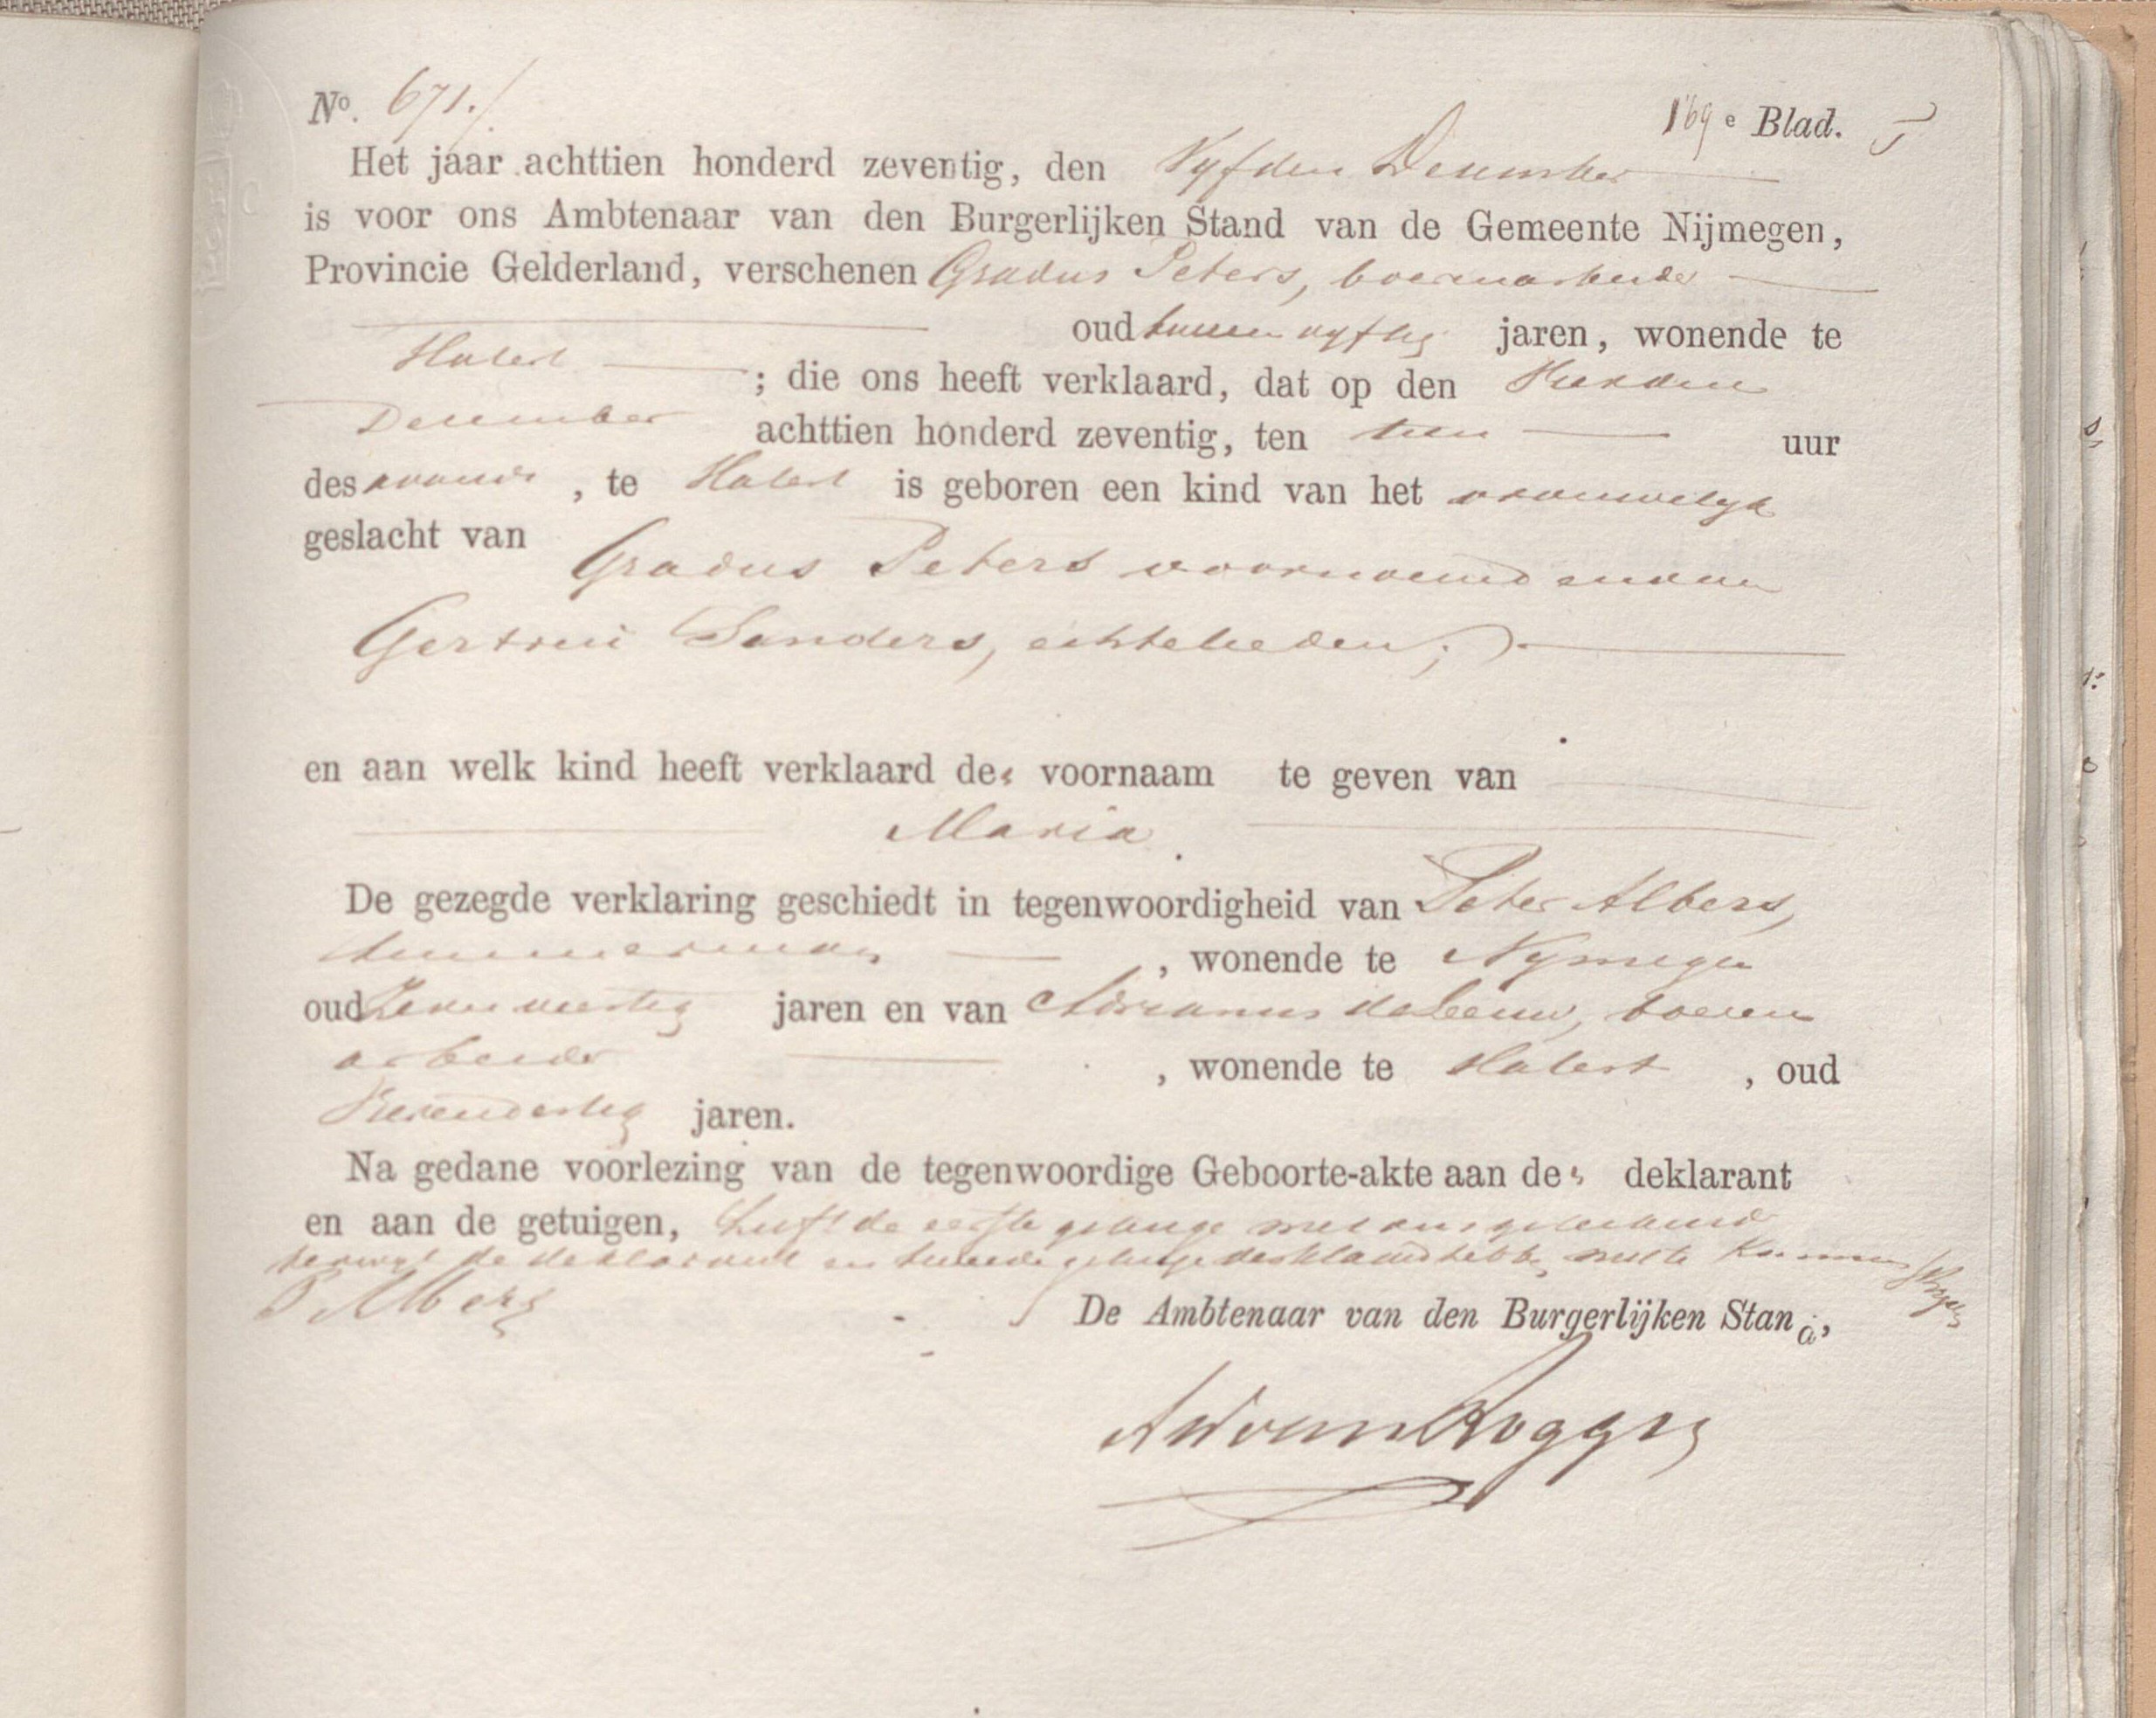 No. 671./
169e Blad.
Het jaar achttien honderd zeventig, den Vyfden December
is voor ons Ambtenaar van den Burgerlijken Stand van de Gemeente Nijmegen,
Provincie Gelderland, verschenen Gradus Peters, boerenarbeider
oud tweeenvyftig jaren, wonende te
Hatert ; die ons heeft verklaard, dat op den Vierden
December achttien honderd zeventig, ten tien uur
des avonds, te Hatert is geboren een kind van het vrouwelyk
geslacht van
Gradus Peters voornoemd en van
Gertrui Sanders, echtelieden;
en aan welk kind heeft verklaard den voornaam te geven van
Maria.
De gezegde verklaring geschiedt in tegenwoordigheid van Peter Albers,
timmerman, wonende te Nymegen
oud Zevenveertig jaren en van Adrianus de Leeuw, boeren
arbeider, wonende te Hatert, oud
jaren.
Na gedane voorlezing van de tegenwoordige Geboorte-akte aan den deklarant
en aan de getuigen, heeft de eerste getuige met ons geteekend
terwyl de deklarant en tweede getuige verklaard hebben niet te kunnen schryven
P Albers
De Ambtenaar van den Burgerlijken Stand,